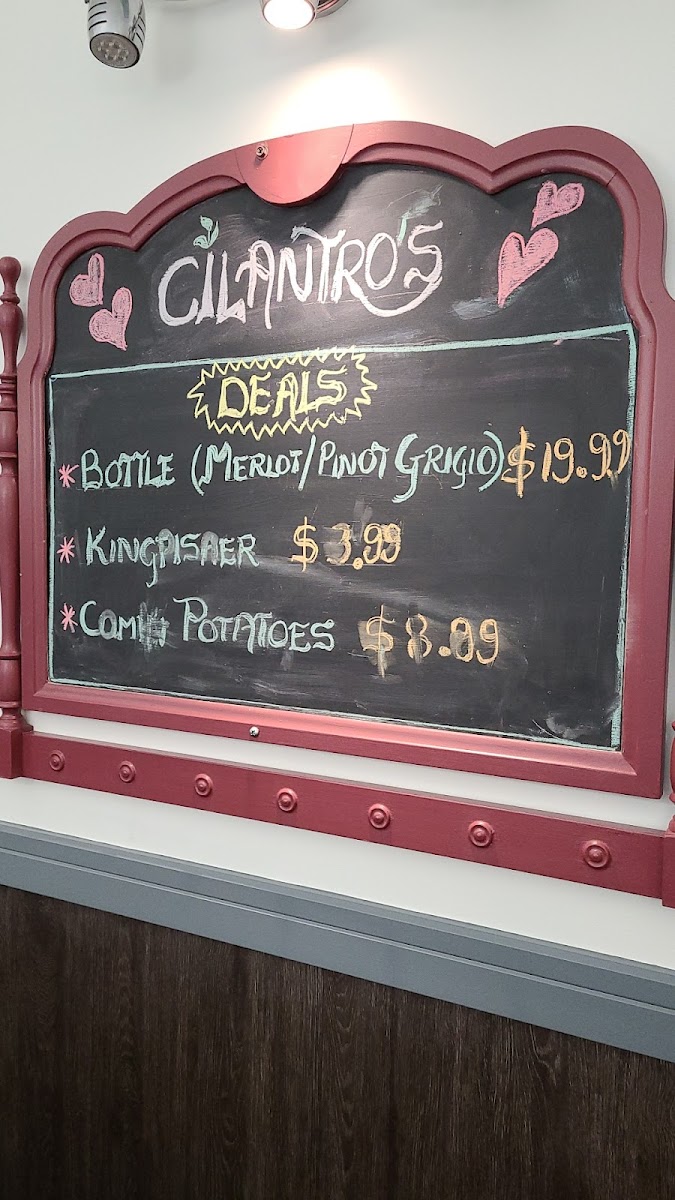 CILANTRO'S
DEALS
* BOTTLE (MERLOT/PINOT GRIGIO) $19.99
* KINGFISHER $3.99
* POTATOES $8.99